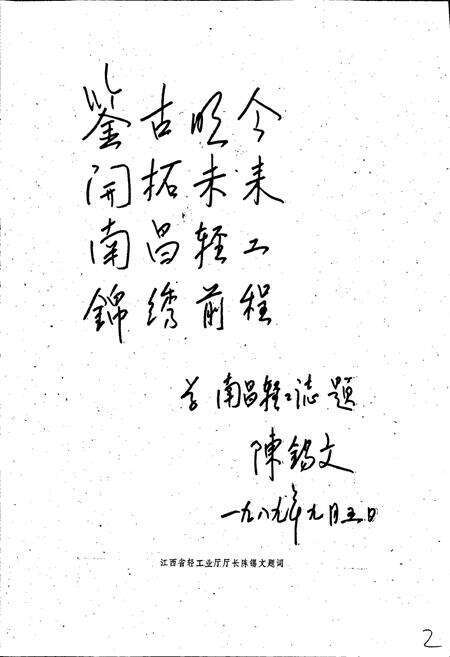 鉴古明今
開拓未来
南昌轻工
錦绣前程
为南昌轻工誌題
陳錫文
一九八九年九月五日
江西省轻工业厅厅长陈锡文题词
2